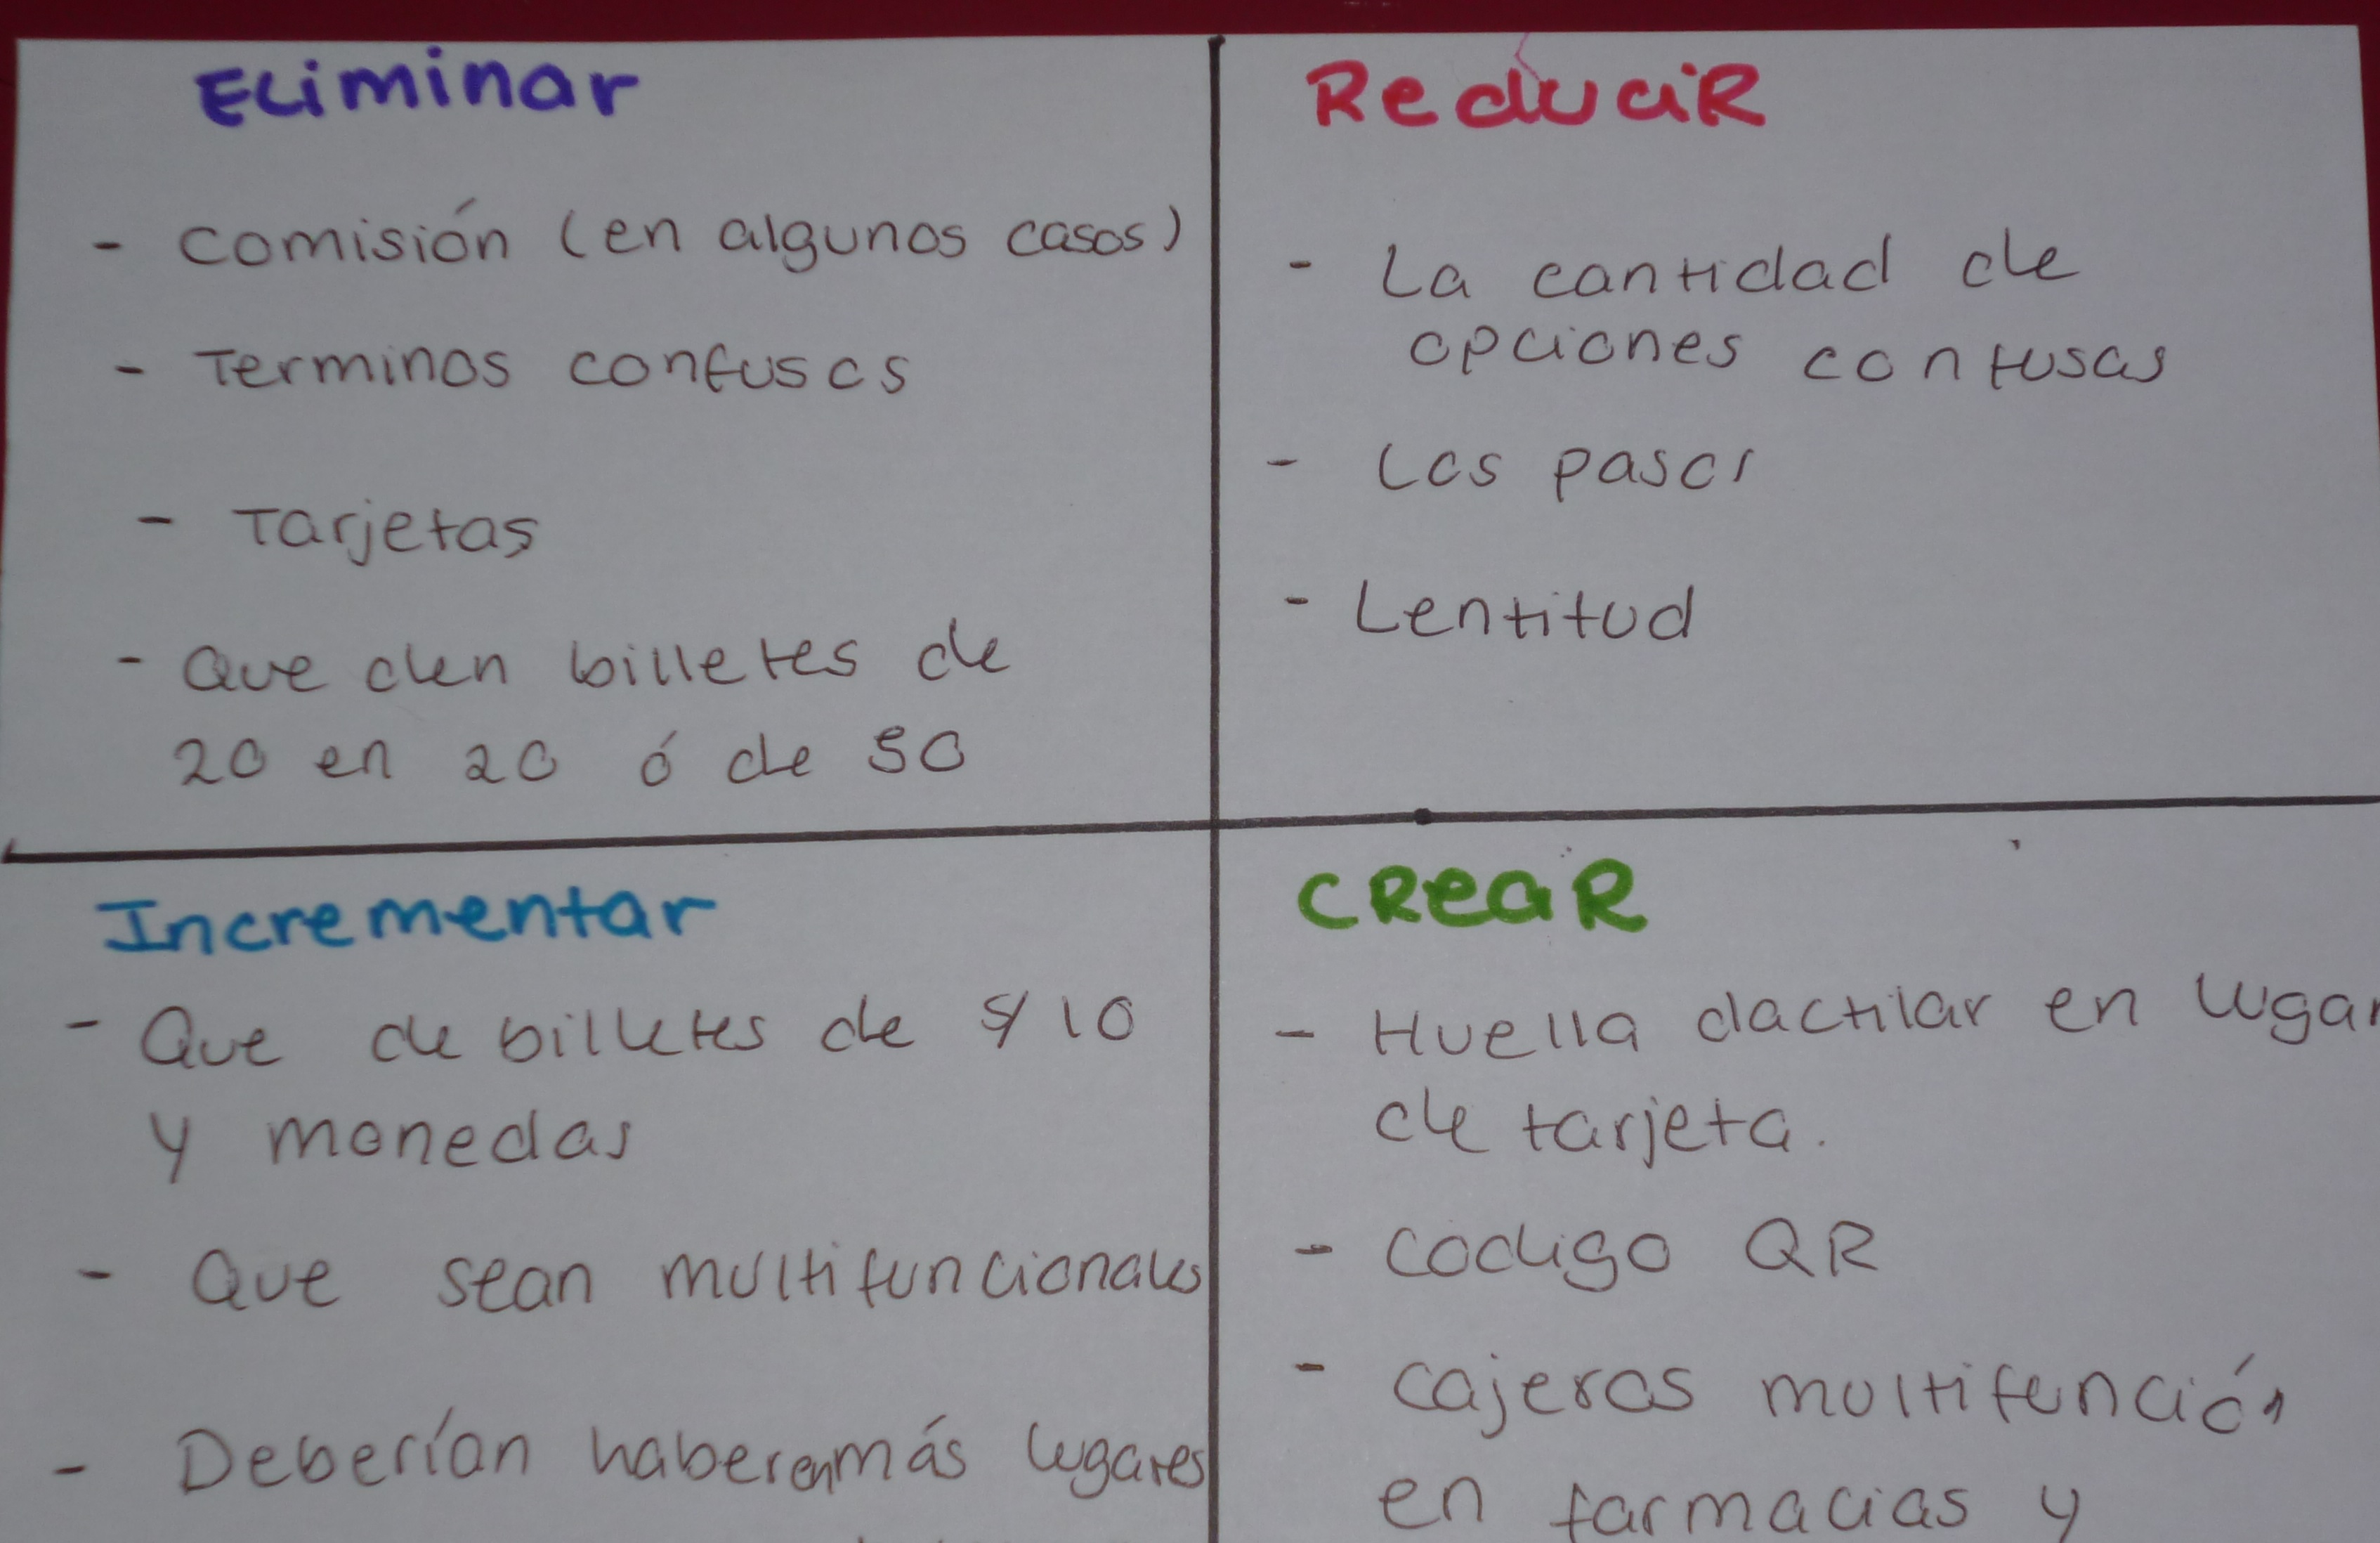 Eliminar
- Comisión (en algunos casos)
- Terminos confusos
- Tarjetas
- Que den billetes de
20 en 20 ó de 50
Reducir
- La cantidad de
opciones confusas
- Los pasos
- Lentitud
Incrementar
- Que de billetes de S/ 10
y monedas
- Que sean multifuncionales
- Deberían haber en más lugares
Crear
- Huella dactilar en lugar
de tarjeta.
- Codigo QR
- Cajeros multifunción
en farmacias y